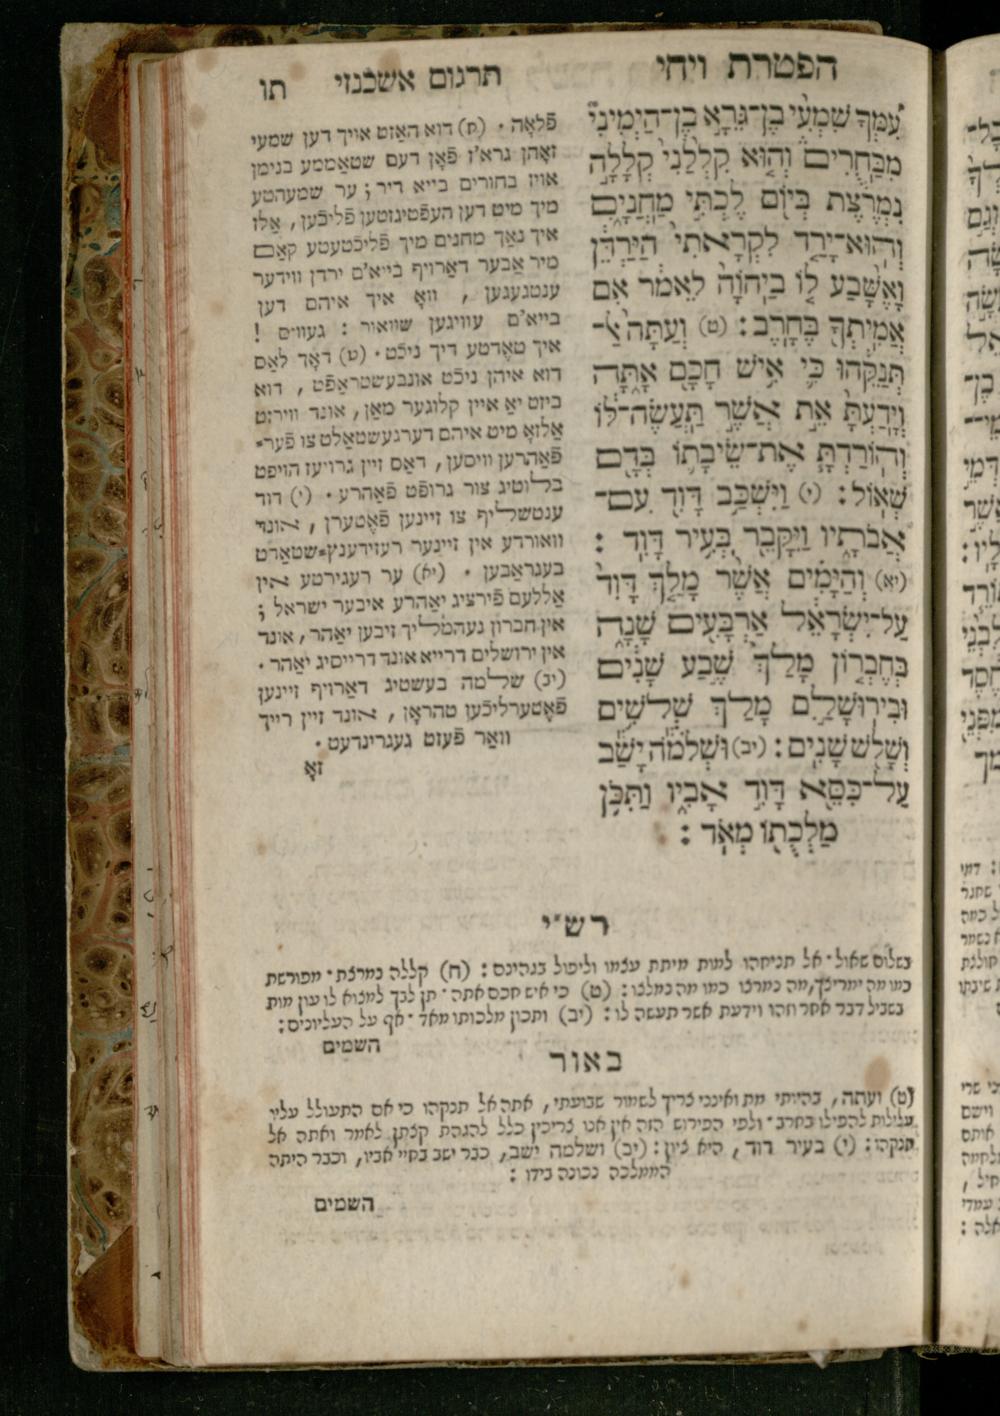 הפטרת ויחי
תרגום אשכנזי
תו
עִמְּךָ שִׁמְעִי בֶן־גֵּרָא בֶן־הַיְמִינִי
מִבַּחֻרִים וְהוּא קִלְלַנִי קְלָלָה
נִמְרֶצֶת בְּיוֹם לֶכְתִּי מַחֲנָיִם
וְהוּא־יָרַד לִקְרָאתִי הַיַּרְדֵּן
וָאֶשָּׁבַע לוֹ בַיהוָֹה לֵאמֹר אִם
אֲמִיתְךָ בֶּחָרֶב : (ט) וְעַתָּה אַ־
תְּנַקֵּהוּ כִּי אִישׁ חָכָם אָתָּה
וְיָדַעְתָּ אֵת אֲשֶׁר תַּעֲשֶׂה־לּוֹ
וְהוֹרַדְתָּ אֶת־שֵׂיבָתוֹ בְּדָם
שְׁאוֹל : (י) וַיִּשְׁכַּב דָּוִד עִם־
אֲבֹתָיו וַיִּקָּבֵר בְּעִיר דָּוִד :
(יא) וְהַיָּמִים אֲשֶׁר מָלַךְ דָּוִד
עַל־יִשְׂרָאֵל אַרְבָּעִים שָׁנָה
בְּחֶבְרוֹן מָלַךְ שֶׁבַע שָׁנִים
וּבִירוּשָׁלַם מָלַךְ שְׁלשִׁים
וְשָׁלֹשׁ שָׁנִים : (יב) וּשְׁלֹמֹה יָשַׁב
עַל־כִּסֵּא דָּוִד אָבִיו וַתִּכֹּן
מַלְכֻתוֹ מְאֹד :
פֿלאָה . (ח) דוא האָזט אויך דען שמעי
זאָהן גרא'ז פֿאָן דעם שטאַממע בנימן
אויז בחורים בייא דיר ; ער שמעהטע
מיך מיט דען העפֿטיגזטען פֿליכֿען , אַלז
איך נאָך מחנים מיך פֿליכֿטעטע קאַם
מיר אַבער דאַרויף בייא'ם ירדן ווידער
ענטגעגען , וואָ איך איהם דען
בייא'ם עוויגען שוואור : געוויס !
איך טאָדטע דיך ניכֿט . (ט) דאָך לאַס
דוא איהן ניכֿט אונבעשטראַפֿט , דוא
ביזט יאַ איין קלוגער מאַן , אונד ווירזט
אַלזאָ מיט איהם דערגעשטאַלט צו פֿער=
פֿאַהרען וויסען , דאַס זיין גרויעז הויפט
בלוטיג צור גרופֿט פֿאַהרע . (י) דוד
ענטשליף צו זיינען פֿאָטערן , אונד
וואורדע אין זיינער רעזידענץ=שטאַדט
בעגראַבען . (יא) ער רעגירטע אין
אַללעם פֿירציג יאַהרע איבער ישראל ;
אין חברון נעהמליך זיבען יאַהר , אונד
אין ירושלים דרייא אונד דרייסיג יאַהר .
(יב) שלמה בעשטיג דאַרויף זיינען
פֿאָטערליכֿען טהראָן , אונד זיין רייך
וואַר פֿעזט געגרינדעט .
זאָ
רש"י
בשלום שאול . אל תניחהו למות מיתת עצמו וליפול בגהינם : (ח) קללה נמרצת . מפורשת
כמו מה ימריצך, מה נמרצו כמו מה נמלצו : (ט) כי איש חכם אתה . תן לבך למצוא לו עון מות
בשביל דבר אחר וזהו וידעת אשר תעשה לו : (יב) ותכון מלכותו מאד . אף על העליונים :
השמים
באור
(ט) ועתה , בהיותי מת ואינני צריך לשמור שבועתי , אתה אל תנקהו כי אם התעולל עליו
עלילות להפילו בחרב . ולפי הפירוש הזה אין אנו צריכין כלל להגהת קצתן לאמר ואתה אל
תנקהו : (י) בעיר דוד , היא ציון : (יב) ושלמה ישב , כבר ישב בחיי אביו , וכבר היתה
הממלכה נכונה בידו :
השמים